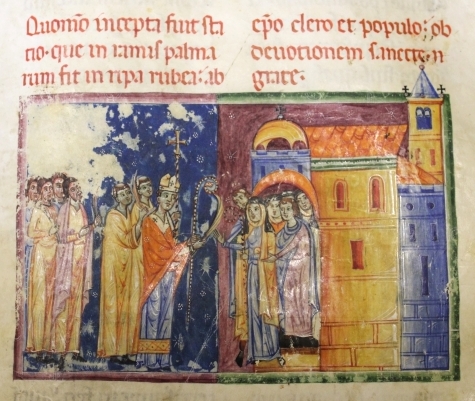 Quomõ incepta fuit sta
tio·que in ramis palma
rum fit in ripa rubea: ab
ep̃o clero et populo; ob
deuotionem s.
grate·